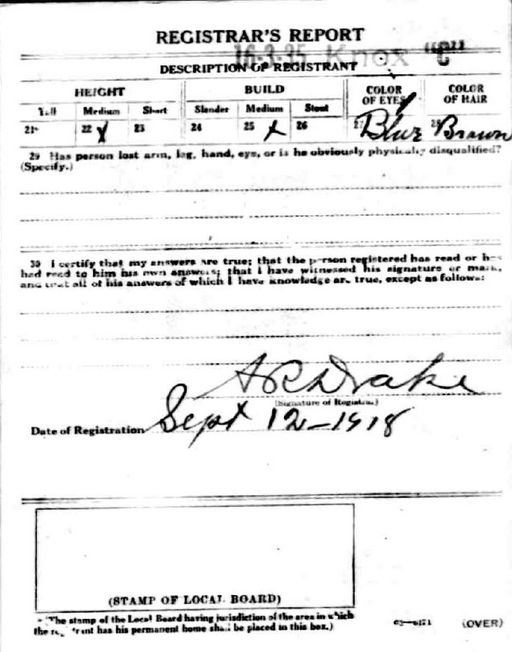 REGISTRAR'S REPORT
16-3-35 Knox "C"
DESCRIPTION OF REGISTRANT
HEIGHT BUILD COLOR OF EYES COLOR OF HAIR
Tall Medium Short Slender Medium Stout
21 22 X 23 24 25 X 26 27 Blue 28 Brown
29 Has person lost arm, leg, hand, eye, or is he obviously physically disqualified?
(Specify.)
30 I certify that my answers are true; that the person registered has read or has
had read to him his own answers; that I have witnessed his signature or mark,
and that all of his answers of which I have knowledge are true, except as follows:
A R Drake
(Signature of Registrar)
Date of Registration Sept 12-1918
(STAMP OF LOCAL BOARD)
The stamp of the Local Board having jurisdiction of the area in which
the registrant has his permanent home shall be placed in this box.)
(OVER)